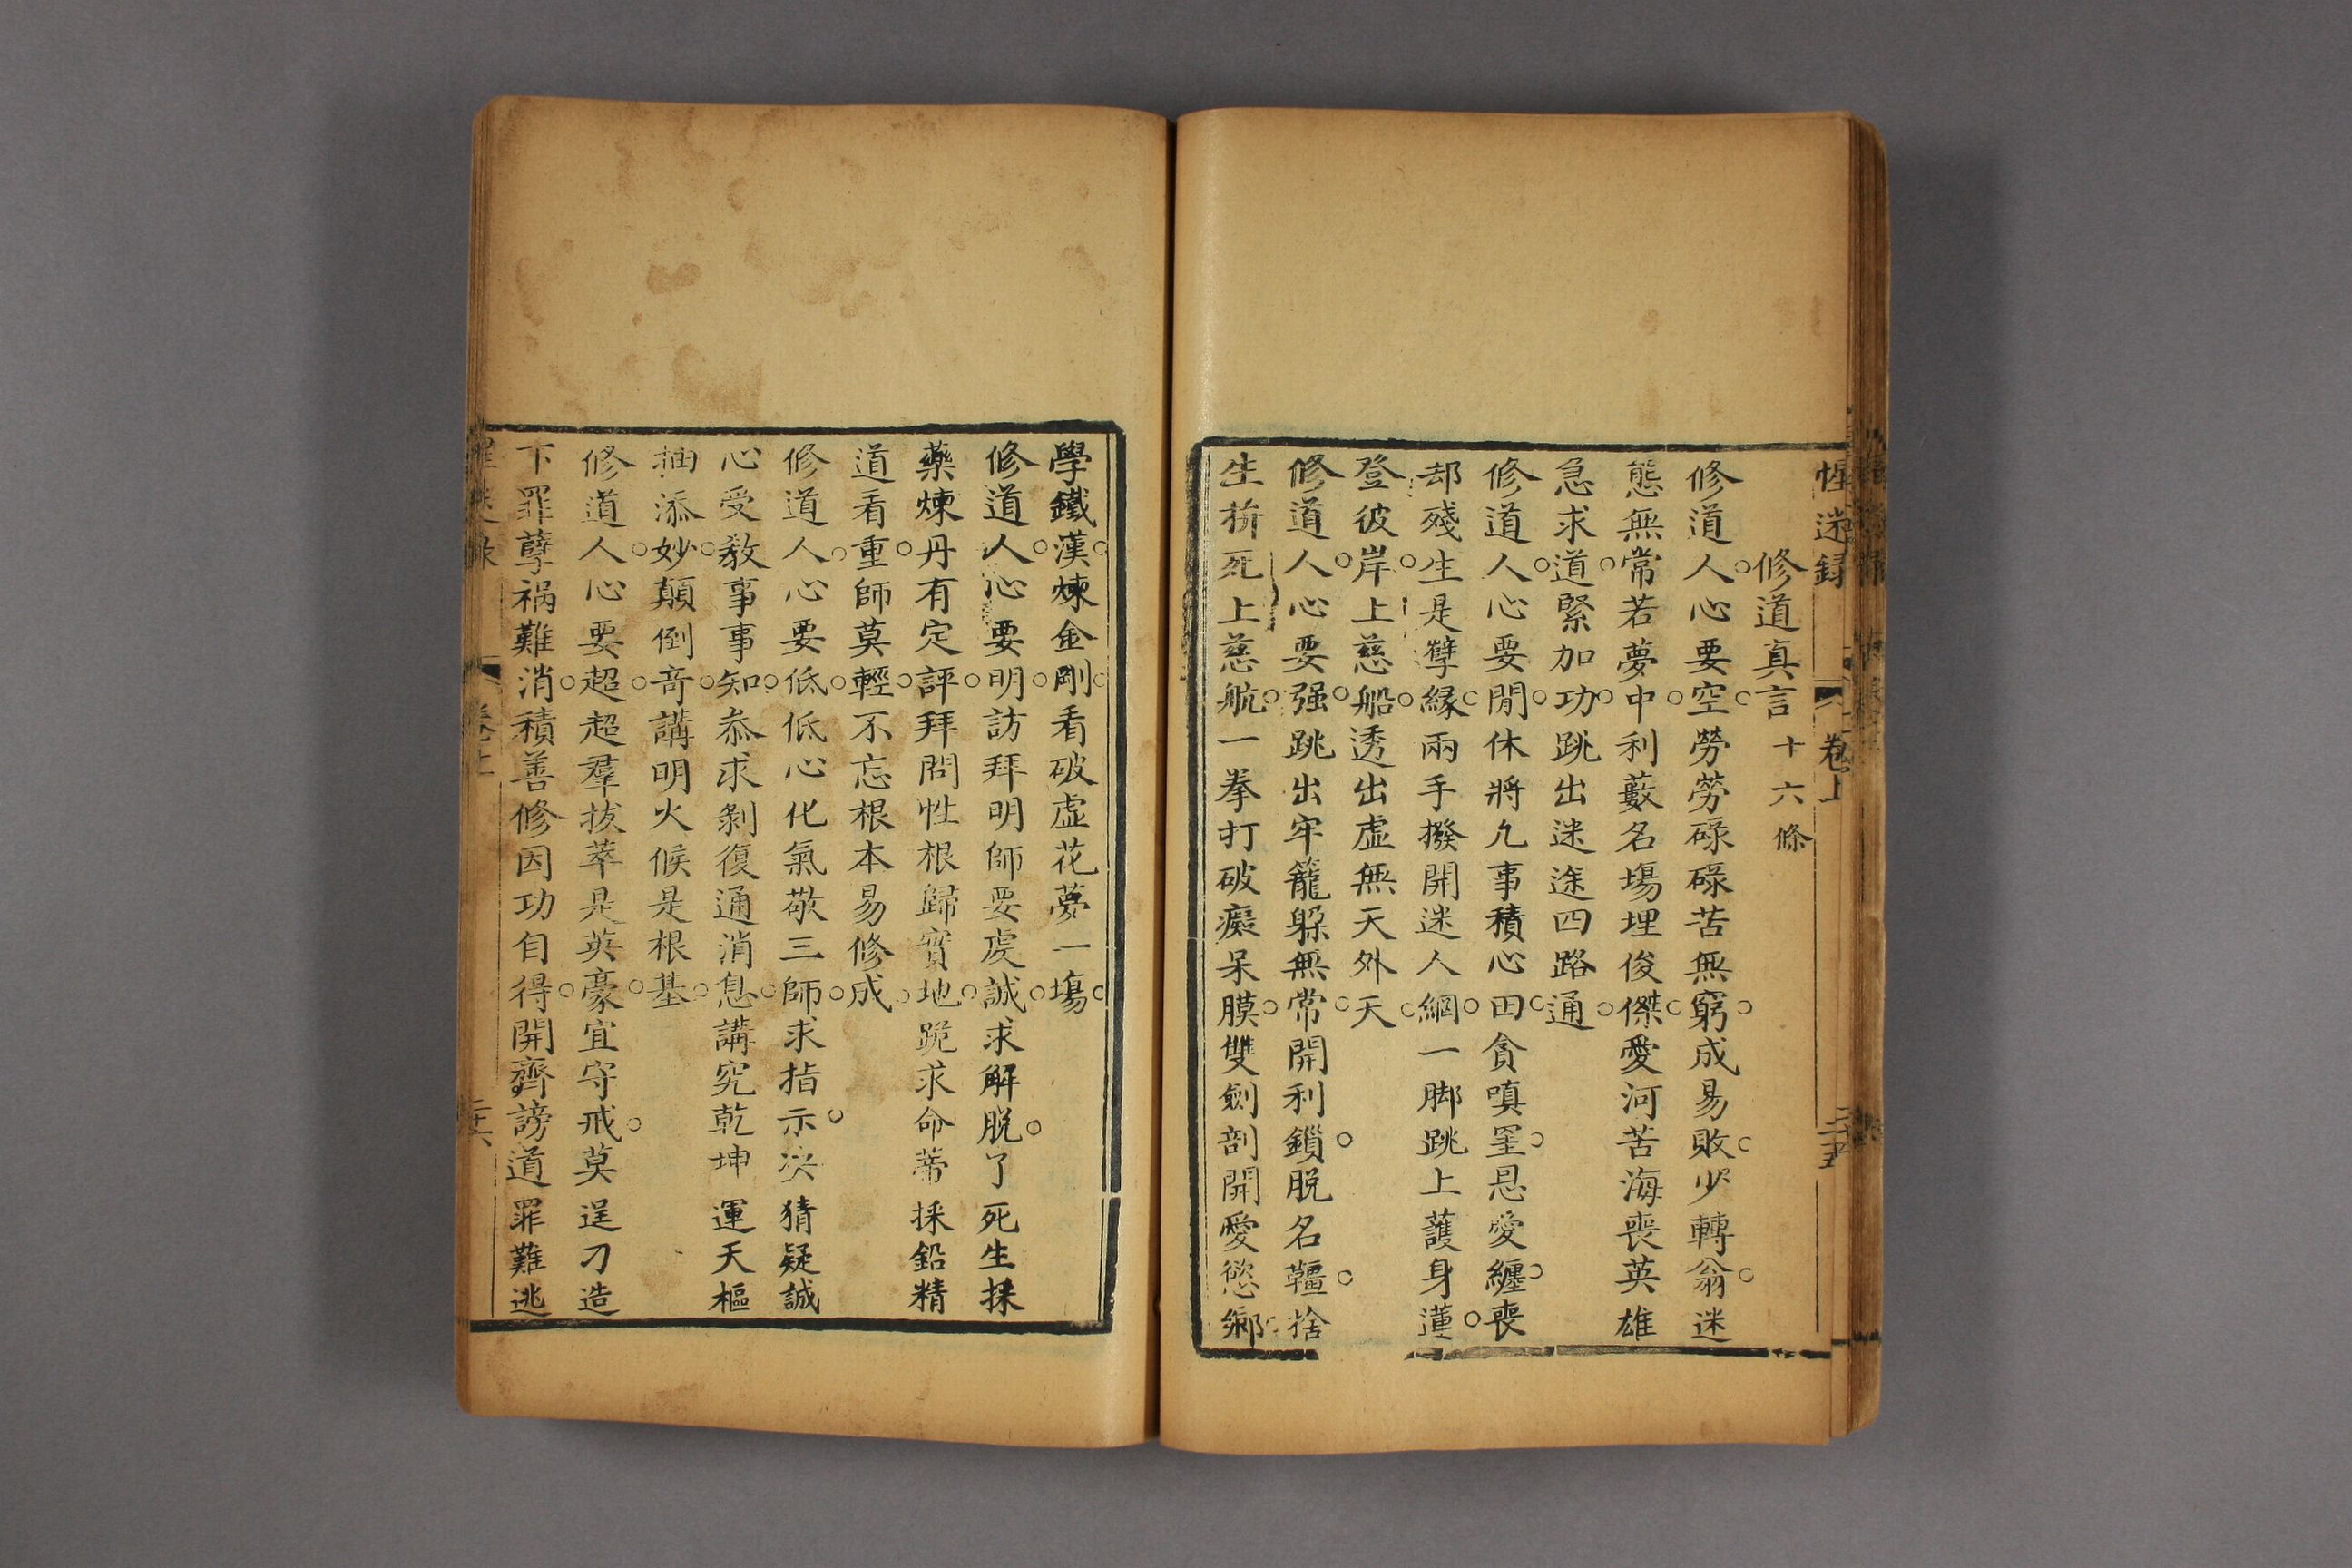 惺迷録 卷上 二十五
修道真言十六條
修道人心要空勞勞碌碌苦無窮成易敗少轉翁迷
態無常若夢中利藪名塲埋俊傑愛河苦海喪英雄
急求道緊加功跳出迷途四路通
修道人心要閒休將九事積心田貪嗔罣悬愛纏喪
却殘生是孽緣兩手撥開迷人網一脚跳上護身蓮
登彼岸上慈船透出虛無天外天
修道人心要强跳出牢籠躲無常開利鎖脫名韁捨
生拚死上慈航一拳打破癡呆膜雙劍剖開愛慾鄉
學鐵漢煉金剛看破虛花夢一塲
修道人心要明訪拜明師要虔誠求解脫了死生採
藥煉丹有定評拜問性根歸實地跪求命蒂採鉛精
道看重師莫輕不忘根本易修成
修道人心要低低心化氣敬三師求指示決猜疑誠
心受教事事知叅求剝復通消息講究乾坤運天樞
抽添妙顛倒竒講明火候是根基
修道人心要超超羣拔萃是英豪宜守戒莫逞刁造
下罪孽禍難消積善修因功自得開齊謗道罪難逃
惺迷録 卷上 二十六